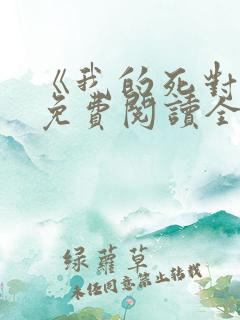 《我的死對
免費閱讀全
綠蘿草
未經同意禁止轉載